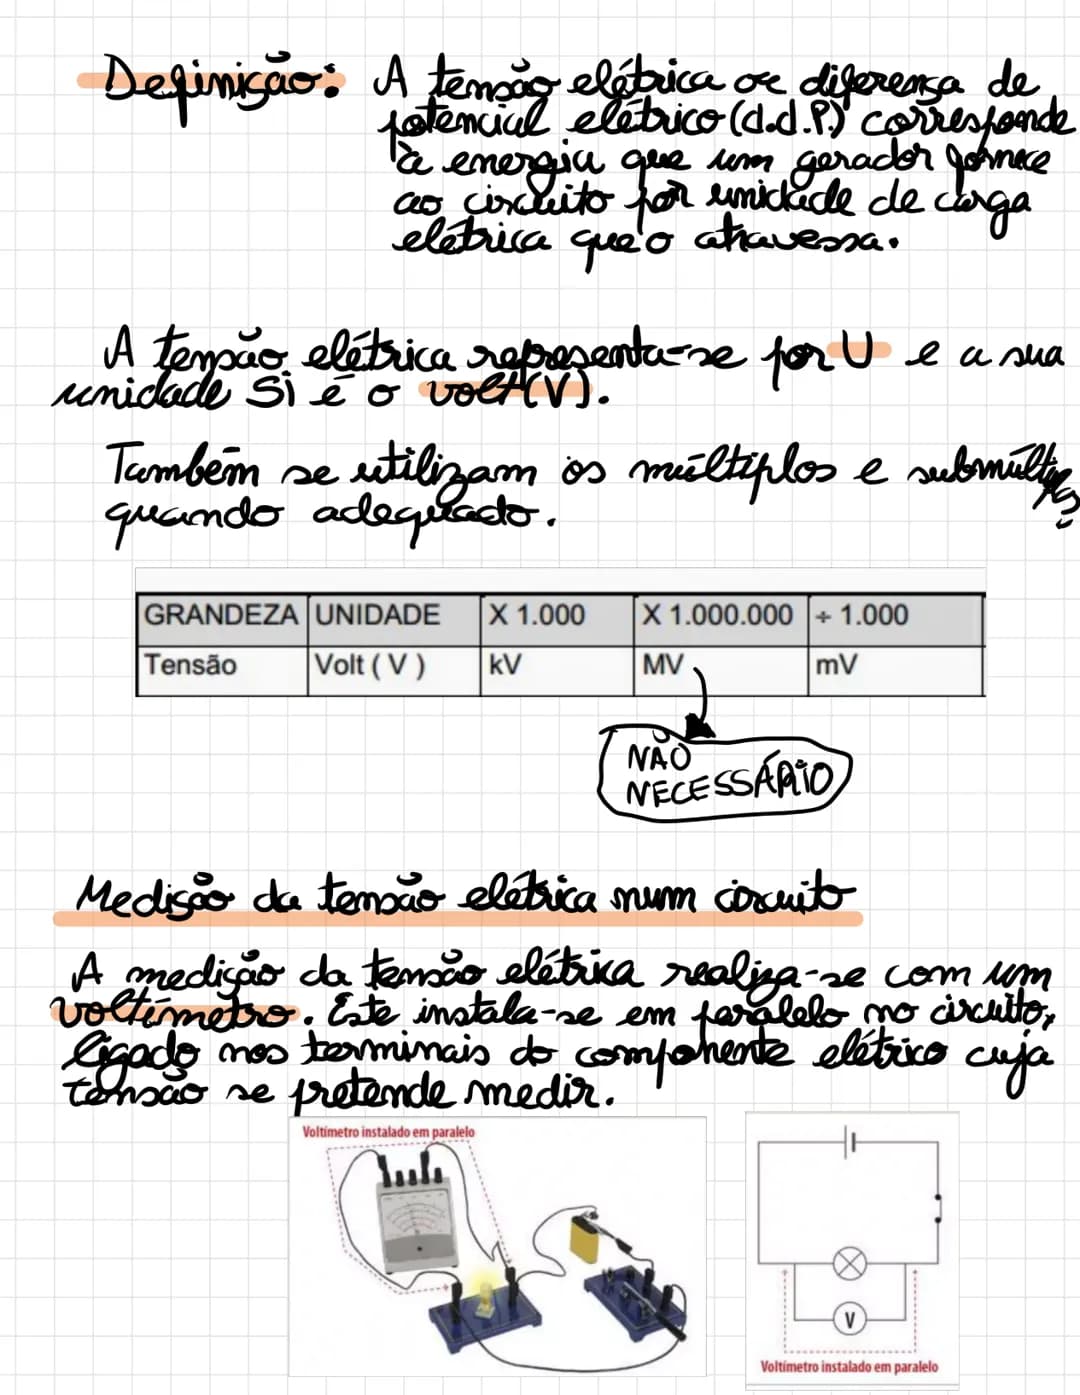 Definição: A tensão elétrica ou diferença de
potencial elétrico (d.d.P.) corresponde
à energia que um gerador fornece
ao circuito por unidade de carga
elétrica que o atravessa.
A tensão elétrica representa-se por U e a sua
unidade Si é o volt (V).
Também se utilizam os múltiplos e submúltiplos
quando adequado.
GRANDEZA UNIDADE X 1.000 X 1.000.000 ÷ 1.000
Tensão Volt ( V ) kV MV mV
NÃO
NECESSÁRiO
Medição da tensão elétrica num circuito
A medição da tensão elétrica realiza-se com um
voltímetro. Este instala-se em paralelo no circuito,
ligado nos terminais do componente elétrico cuja
tensão se pretende medir.
Voltímetro instalado em paralelo
V
Voltímetro instalado em paralelo